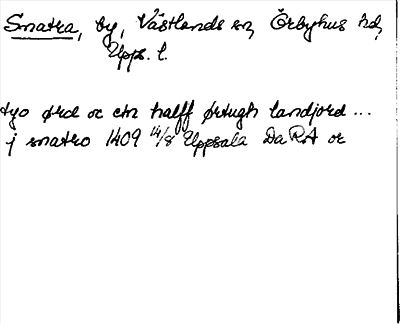 Snatra, by, Västlands sn, Örbyhus hd,
Upps. l.
tyo ørd oc etn halff ørtugh landjord ...
j snatro 1409 14/8 Uppsala Da RA or